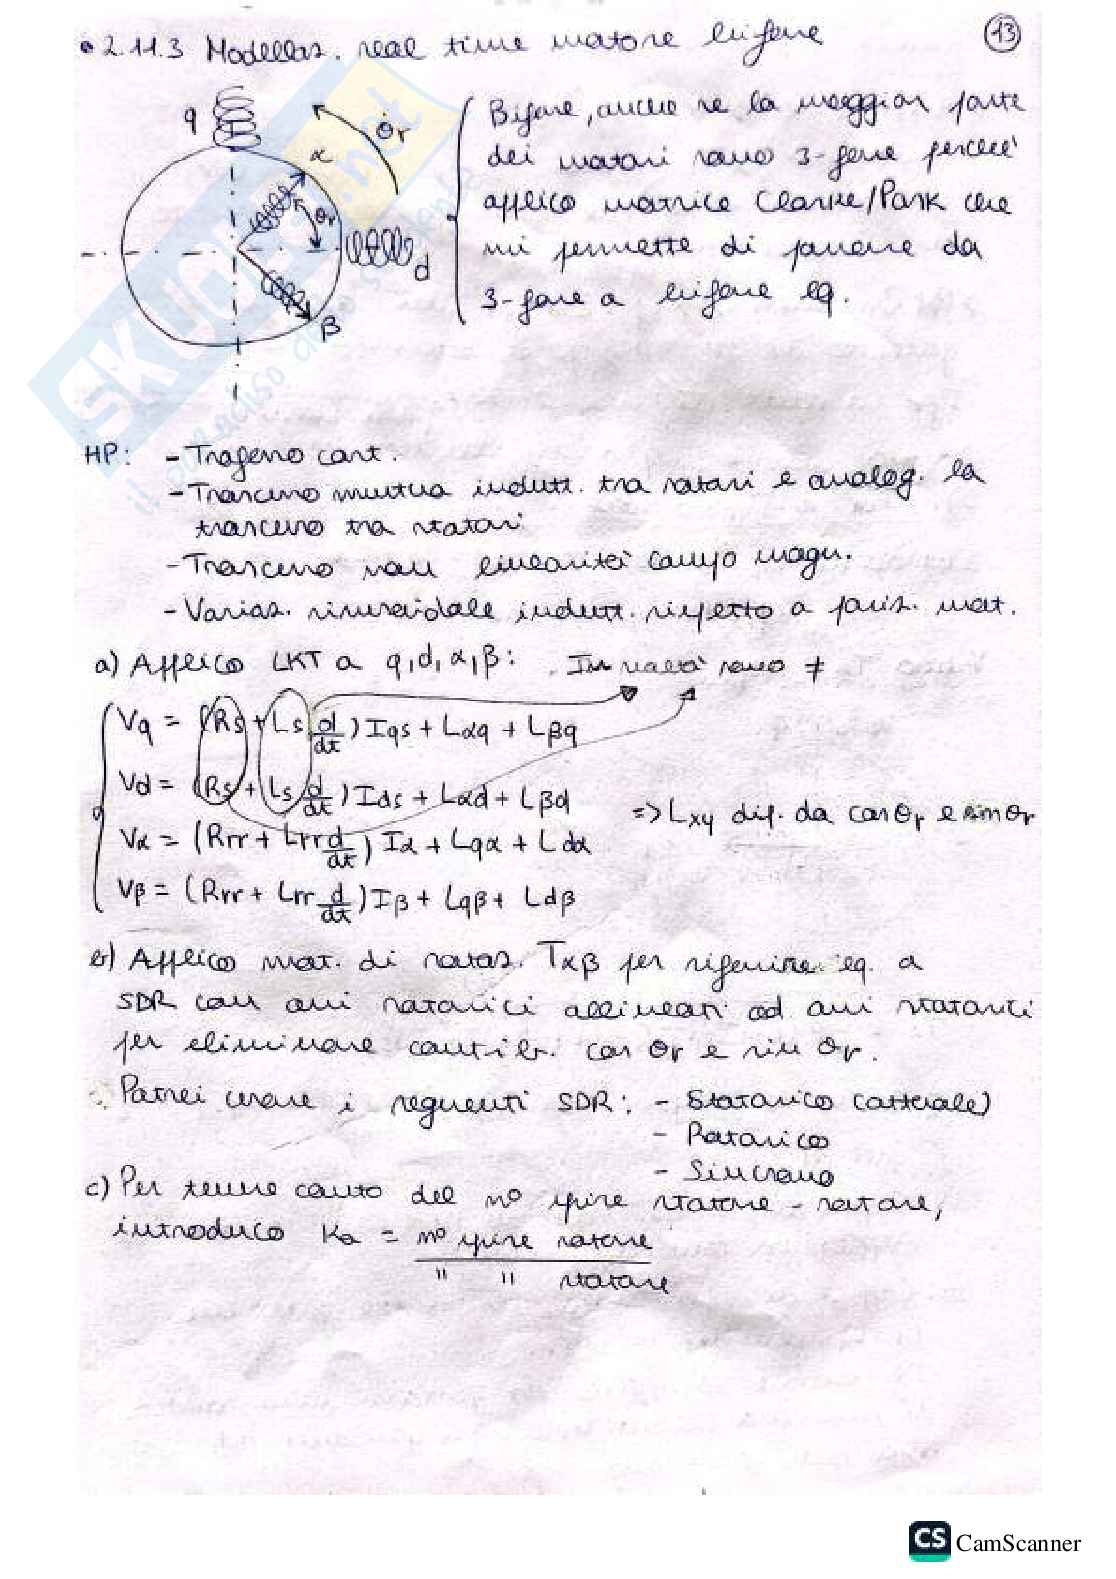 • 2.11.3 Modellaz. real time motore bifase
13
q
θr
α
θr
d
β
Bifase, anche se la maggior parte
dei motori sono 3-fase perché
applico matrice Clarke/Park che
mi permette di passare da
3-fase a bifase eq.
HP: - Traferro cost.
- Trascuro mutua indutt. tra rotori e analog. la
trascuro tra statori
- Trascuro non linearità campo magn.
- Variaz. sinusoidale indutt. rispetto a posiz. mot.
a) Applico LKT a q,d,α,β: . In realtà sono ≠
Vq = (Rs + Ls d/dt) Iqs + Lαq + Lβq
Vd = (Rs + Ls d/dt) Ids + Lαd + Lβd
=> Lxy dip. da cosθr e sinθr
Vα = (Rrr + Lrr d/dt) Iα + Lqα + Ldα
Vβ = (Rrr + Lrr d/dt) Iβ + Lqβ + Ldβ
b) Applico mat. di rotaz. Tαβ per riferire eq. a
SDR con assi rotorici allineati ad assi statorici
per eliminare contrib. cos θr e sin θr.
Potrei usare i seguenti SDR: - Statorico (attuale)
- Rotorico
- Sincrono
c) Per tenere conto del n° spire statore - rotore,
introduco Ka = n° spire rotore
" " statore
SKUOLA.net
il paradiso dello studente
CS CamScanner